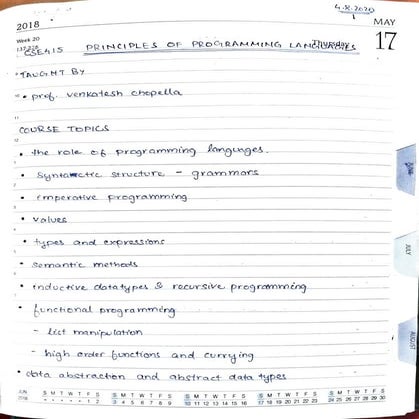 4.8.2020
2018
MAY
Week 20
137-228
Thursday
17
CSE415 PRINCIPLES OF PROGRAMMING LANGUAGES
TAUGHT BY
• prof. venkatesh choppella
COURSE TOPICS
• the role of programming languages.
• Syntactic structure - grammars
• imperative programming
• values
• types and expressions
• semantic methods
• inductive datatypes & recursive programming
• functional programming
- list manipulation
- high order functions and currying
• data abstraction and abstract data types
JULY
AUGUST
JUN
2018
S M T W T F S S M T W T F S S M T W T F S S M T W T F S S M T W T F S
1 2 3 4 5 6 7 8 9 10 11 12 13 14 15 16 17 18 19 20 21 22 23 24 25 26 27 28 29 30